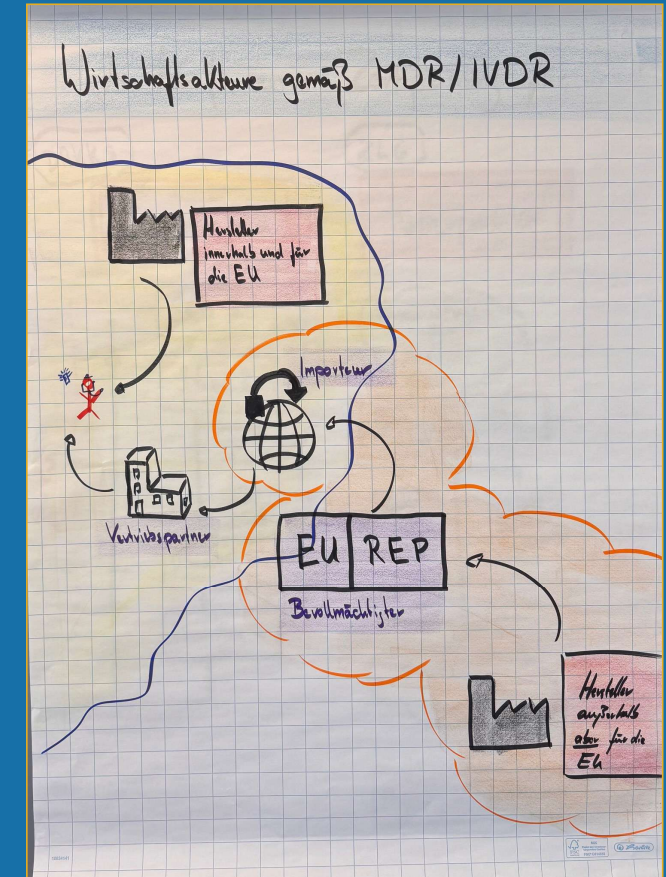 Wirtschaftsakteure gemäß MDR/IVDR
Hersteller
innerhalb und für
die EU
Importeur
Vertriebspartner
EU REP
Bevollmächtigter
Hersteller
außerhalb
aber für die
EU